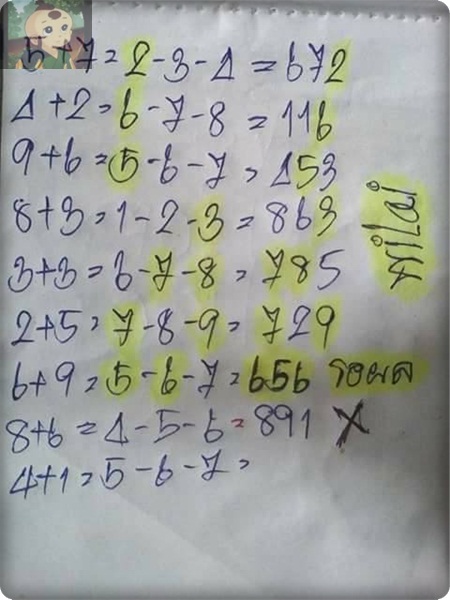 5+7=2-3-4=672
4+2=6-7-8=116
9+6=5-6-7=453
8+3=1-2-3=863
3+3=6-7-8=785
2+5=7-8-9=729
6+9=5-6-7=656 รอผล
8+6=4-5-6=891 X
4+1=5-6-7=